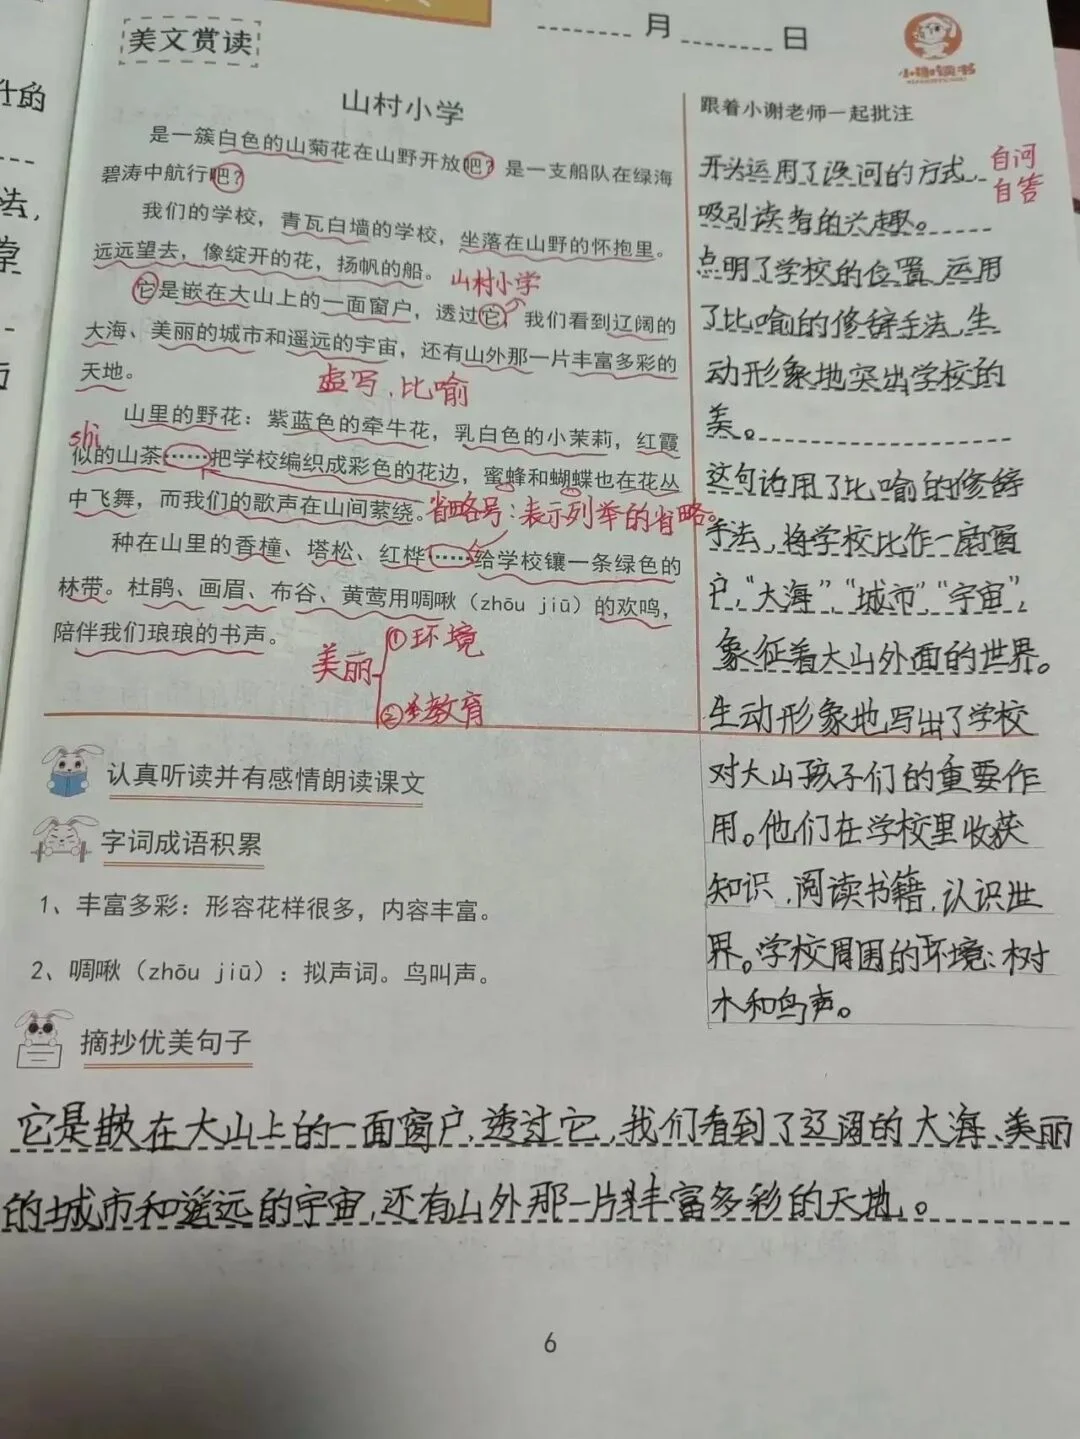 美文赏读
月 日
小谢读书
山村小学
是一簇白色的山菊花在山野开放吧？是一支船队在绿海
碧涛中航行吧？
我们的学校，青瓦白墙的学校，坐落在山野的怀抱里。
远远望去，像绽开的花，扬帆的船。
山村小学
它是嵌在大山上的一面窗户，透过它，我们看到辽阔的
大海、美丽的城市和遥远的宇宙，还有山外那一片丰富多彩的
天地。
虚写、比喻
山里的野花：紫蓝色的牵牛花，乳白色的小茉莉，红霞
shì
似的山茶……把学校编织成彩色的花边，蜜蜂和蝴蝶也在花丛
中飞舞，而我们的歌声在山间萦绕。
省略号：表示列举的省略。
种在山里的香橦、塔松、红桦……给学校镶一条绿色的
林带。杜鹃、画眉、布谷、黄莺用啁啾（zhōu jiū）的欢鸣，
陪伴我们琅琅的书声。
美丽
①环境
②教育
跟着小谢老师一起批注
开头运用了设问的方式，
自问
自答
吸引读者的兴趣。
点明了学校的位置，运用
了比喻的修辞手法，生
动形象地突出学校的
美。
这句话用了比喻的修辞
手法，将学校比作一扇窗
户，“大海”，“城市”“宇宙”，
象征着大山外面的世界。
生动形象地写出了学校
对大山孩子们的重要作
用。他们在学校里收获
知识，阅读书籍，认识世
界。学校周围的环境：树
木和鸟声。
认真听读并有感情朗读课文
字词成语积累
1、丰富多彩：形容花样很多，内容丰富。
2、啁啾（zhōu jiū）：拟声词。鸟叫声。
摘抄优美句子
它是嵌在大山上的一面窗户，透过它，我们看到了辽阔的大海、美丽
的城市和遥远的宇宙，还有山外那一片丰富多彩的天地。
6